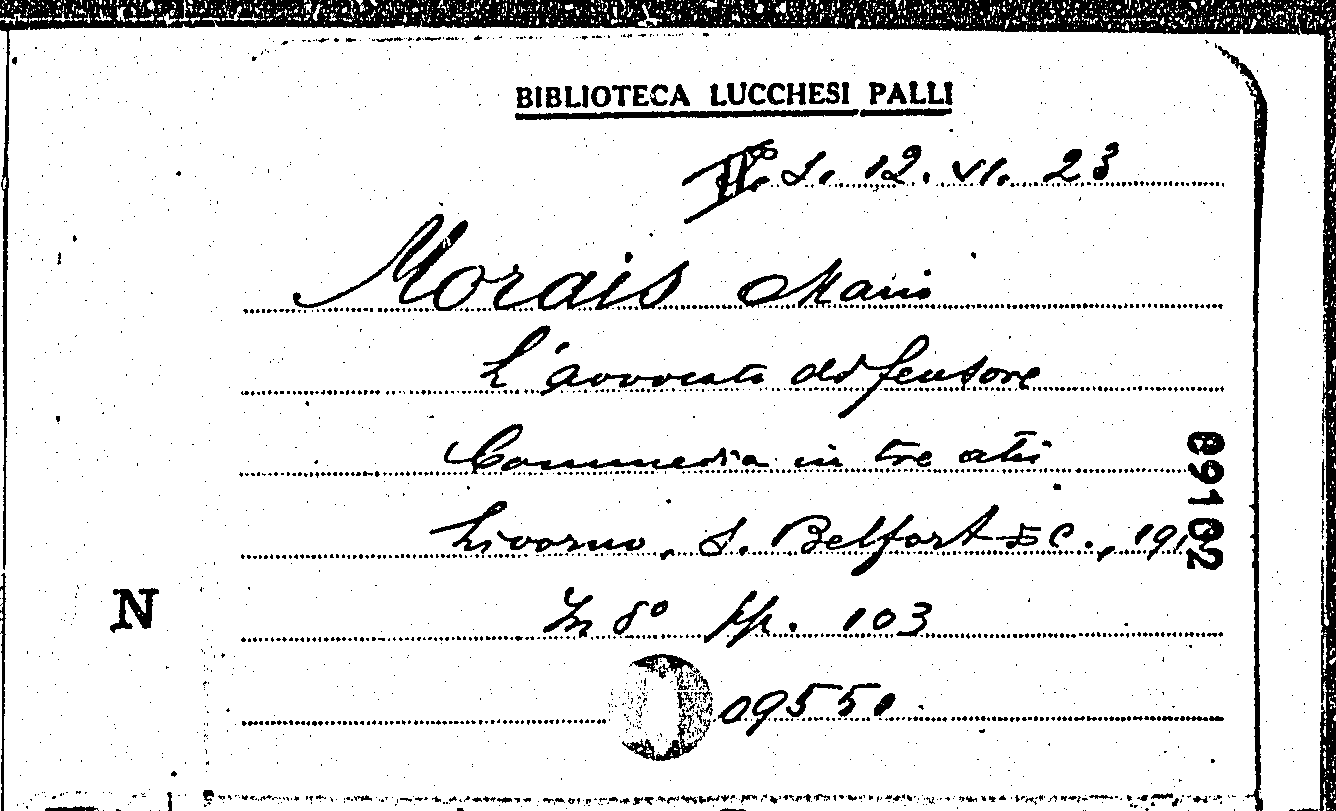 BIBLIOTECA LUCCHESI PALLI
L. 12. VI. 23
Morais Mario
L'avvocato difensore
Commedia in tre atti
Livorno, S. Belfort & C.,
89102
In 8º pp. 103
N
09550